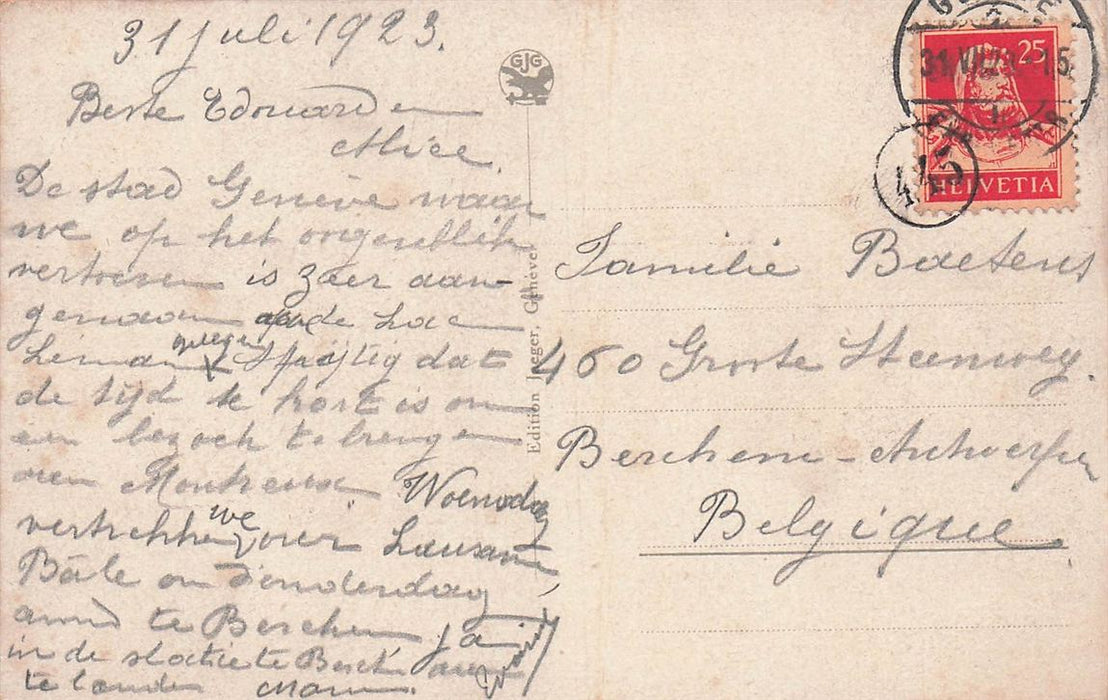 31 Juli 1923.
Beste Edouard en
Alice
De stad Genève waar
we op het oogenblik
vertoeven is zeer aan-
genaam aan de Lac
Leman gelegen Spijtig dat
de tijd te kort is om
een bezoek te brengen
aan Montreux Woensdag
vertrekken we over Lausanne
Bâle om donderdag
avond te Berchem
in de statie te Berch. aan
te landen
GJG
Edition Jaeger, Genève
GENÈVE
31.VII.23.15
445
25
HELVETIA
Familie Baetens
460 Groote Steenweg.
Berchem-Antwerpen
Belgique